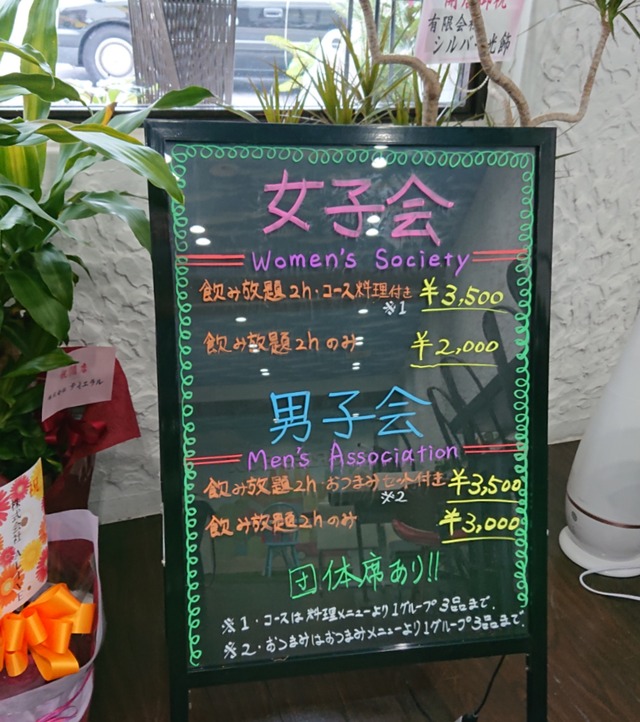 開店御祝
有限会
シルバー光飾
女子会
Women's Society
飲み放題2h・コース料理付き ¥3,500
※1
飲み放題2hのみ ¥2,000
男子会
Men's Association
飲み放題2hおつまみセット付き ¥3,500
※2
飲み放題2hのみ ¥3,000
団体席あり!!
※1・コースは料理メニューより1グループ3品まで.
※2・おつまみはおつまみメニューより1グループ3品まで.
祝